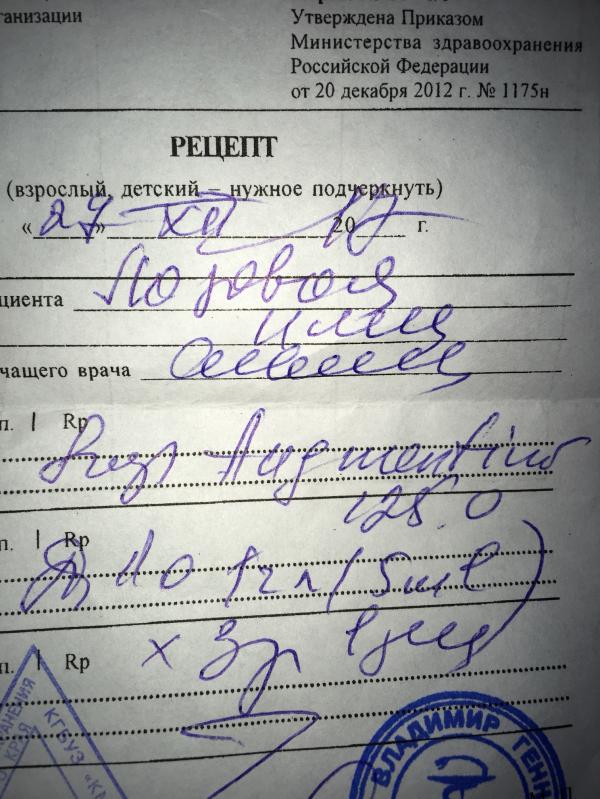 ганизации
Утверждена Приказом
Министерства здравоохранения
Российской Федерации
от 20 декабря 2012 г. № 1175н
РЕЦЕПТ
(взрослый, детский – нужное подчеркнуть)
« 27 » XII 20 17 г.
циента Лозовая
чащего врача
п. | Rp
Augmentini
125.0
п. | Rp
1 ч л (5 ml)
п. | Rp x 3 р
КГБУЗ «КМ
ВЛАДИМИР ГЕНН